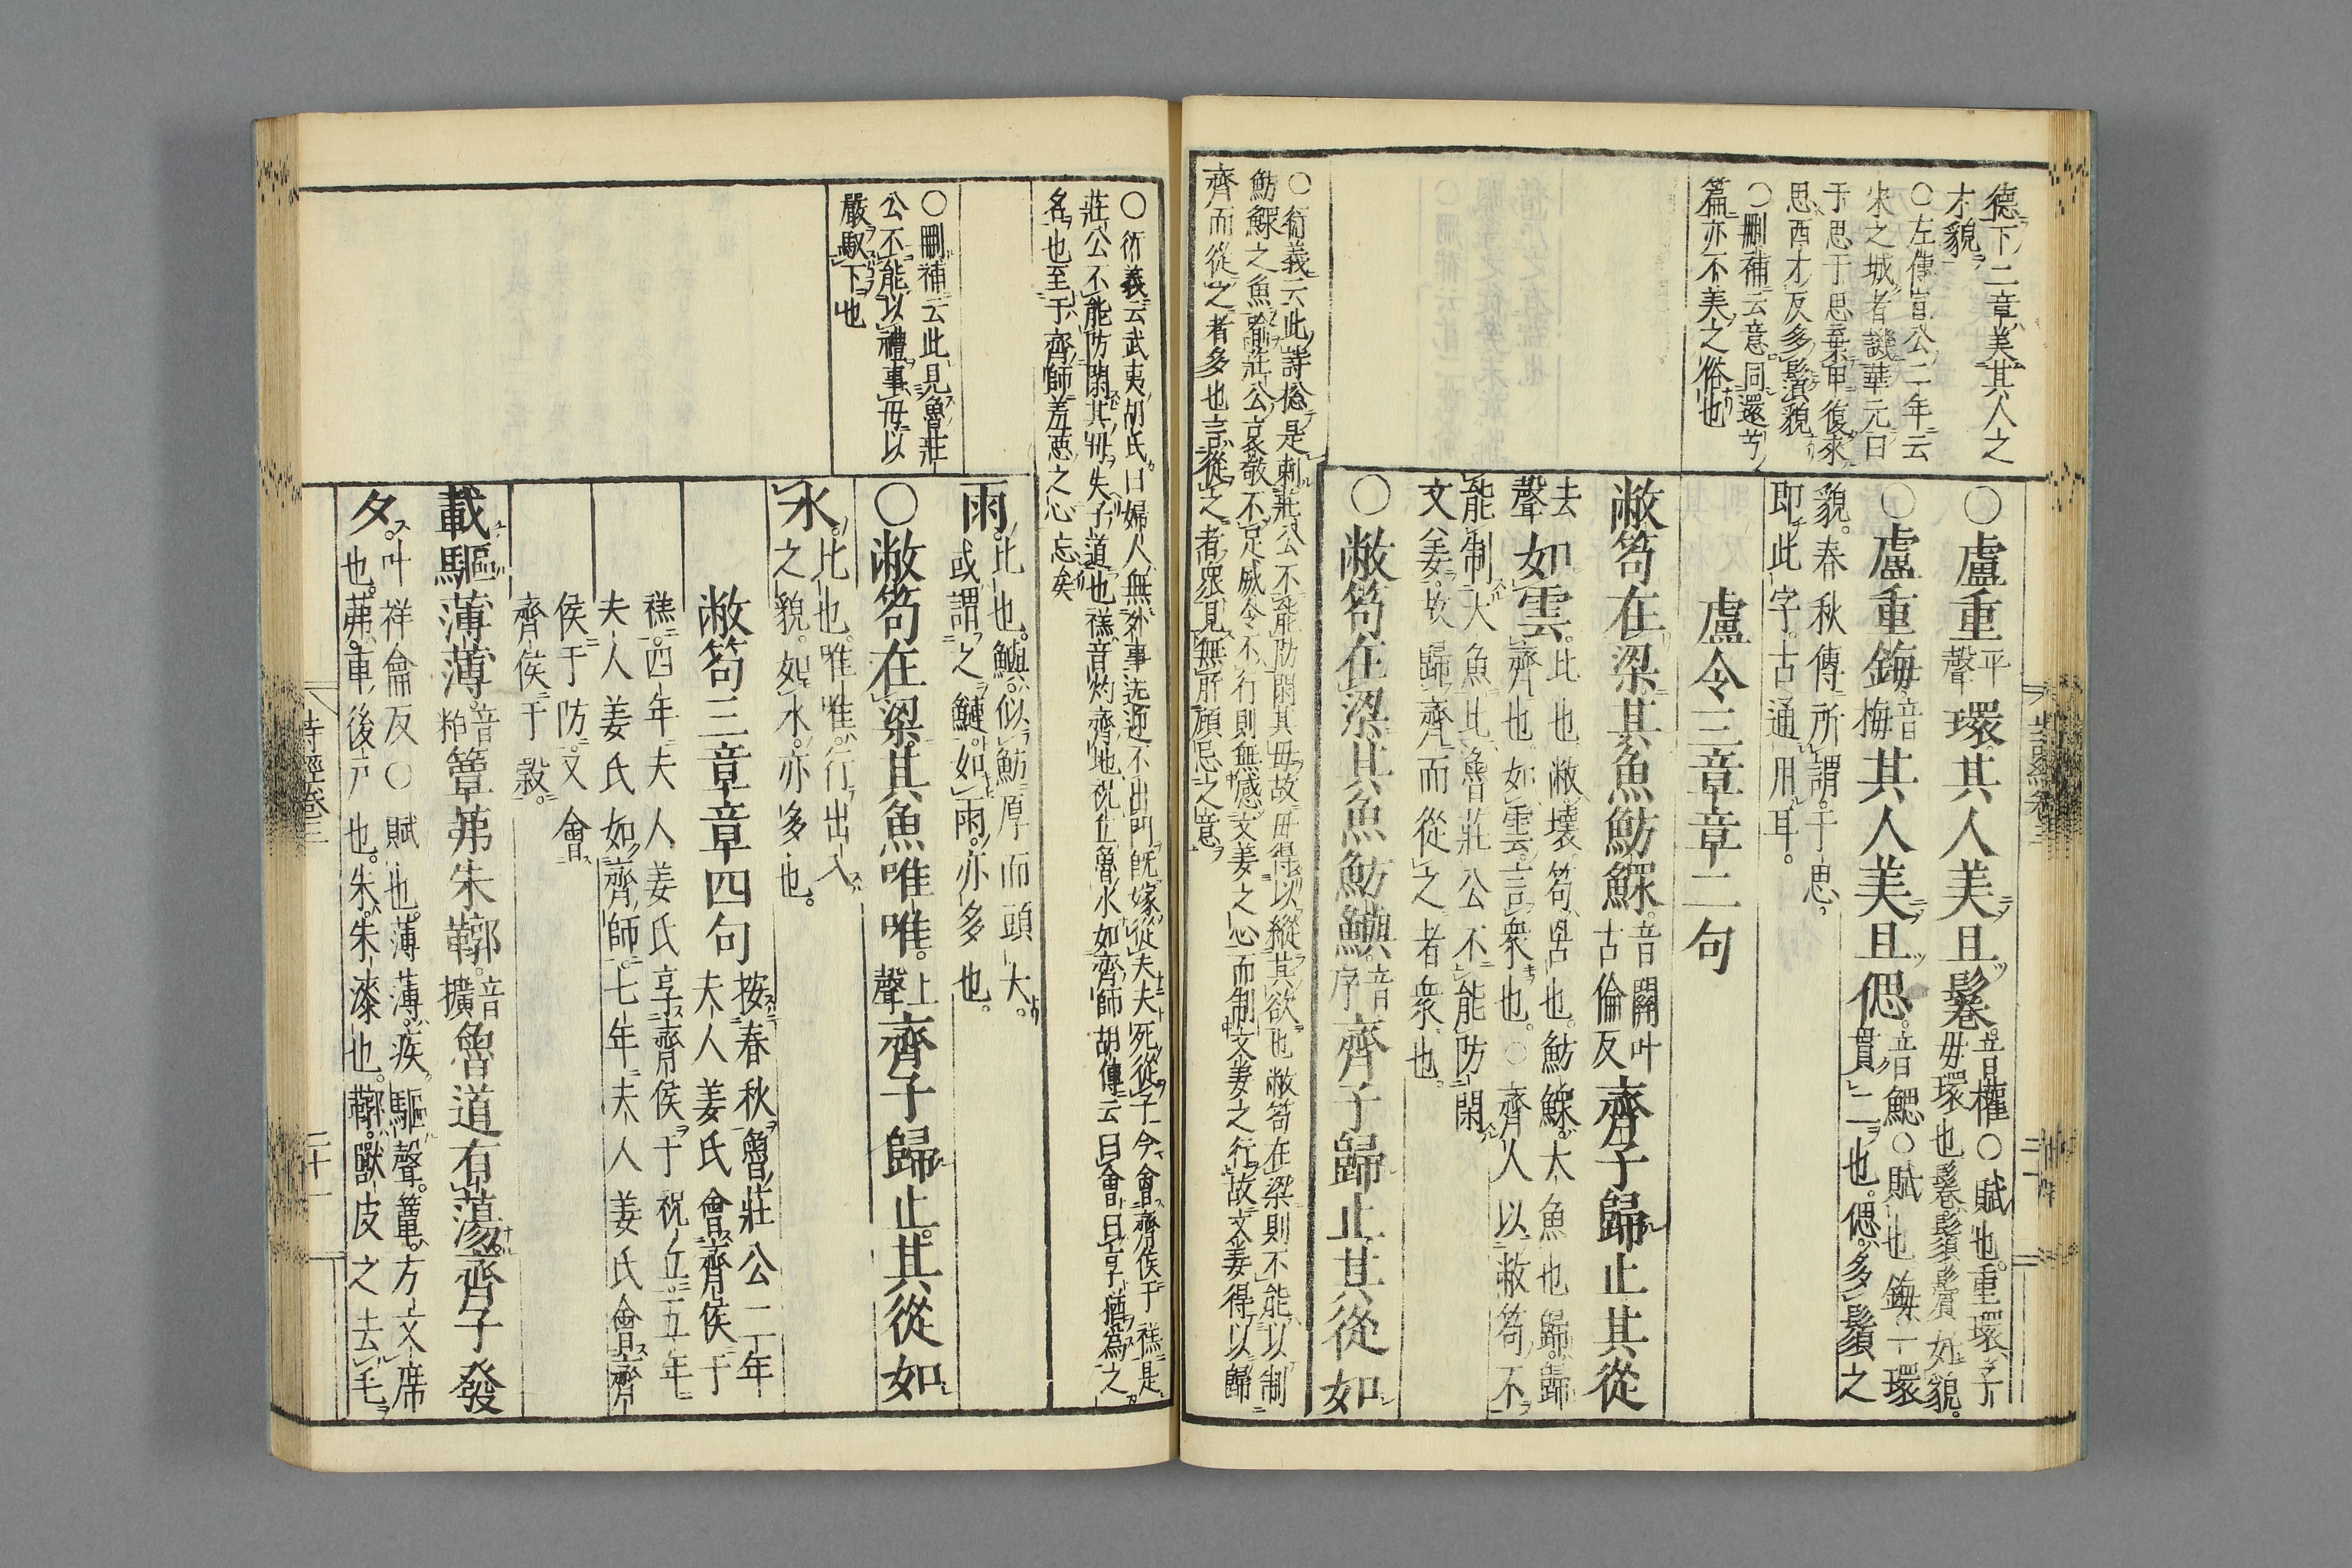 德下二章美其人之
才貌
○左傳宣公二年云
宋之城者譏華元曰
于思于思棄甲復來
思西才反多鬚貌
○刪補云意同還兮
篇亦不美之俗也
○盧重平聲環其人美且鬈音權○賦也重環子
母環也鬈鬚鬢好貌
○盧重鋂音梅其人美且偲音鰓○賦也鋂一環
貫二也偲多鬚之
貌春秋傳所謂于思
即此字古通用耳
盧令三章章二句
敝笱在梁其魚魴鰥音關叶古倫反齊子歸止其從
去聲如雲比也敝壞笱罟也魴鰥大魚也歸歸
齊也如雲言衆也○齊人以敝笱不
能制大魚比魯莊公不能防閑
文姜故歸齊而從之者衆也
○敝笱在梁其魚魴鱮音序齊子歸止其從如
○衍義云此詩捴是刺莊公不能防閑其母故毋得以縱其欲也敝笱在梁則不能以制
魴鰥之魚喻莊公哀敬不足威令不行則無感文姜之心而制文姜之行故文姜得以歸
齊而從之者多也言從之者衆見無所顧忌之意
詩經卷三
○衍義云武夷胡氏曰婦人無外事送迎不出門既嫁從夫夫死從子今會齊侯于禚是
莊公不能防閑其母失子道也禚音灼齊地祝丘魯水如齊師胡傳云曰會曰享猶爲之
名也至于齊師羞惡之心忘矣
○刪補云此見魯莊
公不能以禮事母以
嚴馭下也
雨比也鱮似魴厚而頭大
或謂之鰱如雨亦多也
○敝笱在梁其魚唯唯上聲齊子歸止其從如
水比也唯唯行出入
之貌如水亦多也
敝笱三章章四句按春秋魯莊公二年
夫人姜氏會齊侯于
禚四年夫人姜氏享齊侯于祝丘五年
夫人姜氏如齊師七年夫人姜氏會齊
侯于防又會
齊侯于穀
載驅薄薄音粕簟茀朱鞹音擴魯道有蕩齊子發
夕叶祥龠反○賦也薄薄疾驅聲簟方文席
也茀車後戸也朱朱漆也鞹獸皮之去毛
詩經卷三
二十一